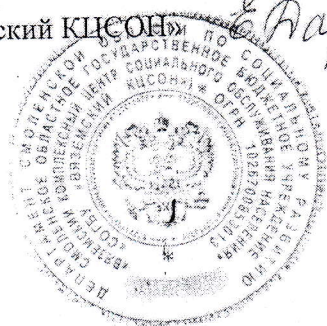 ский КЦСОН»
ДЕПАРТАМЕНТ СМОЛЕНСКОЙ ОБЛАСТИ ПО СОЦИАЛЬНОМУ РАЗВИТИЮ
СМОЛЕНСКОЕ ОБЛАСТНОЕ ГОСУДАРСТВЕННОЕ БЮДЖЕТНОЕ УЧРЕЖДЕНИЕ
«ВЯЗЕМСКИЙ КОМПЛЕКСНЫЙ ЦЕНТР СОЦИАЛЬНОГО ОБСЛУЖИВАНИЯ НАСЕЛЕНИЯ»
(СОГБУ «ВЯЗЕМСКИЙ КЦСОН») * ОГРН